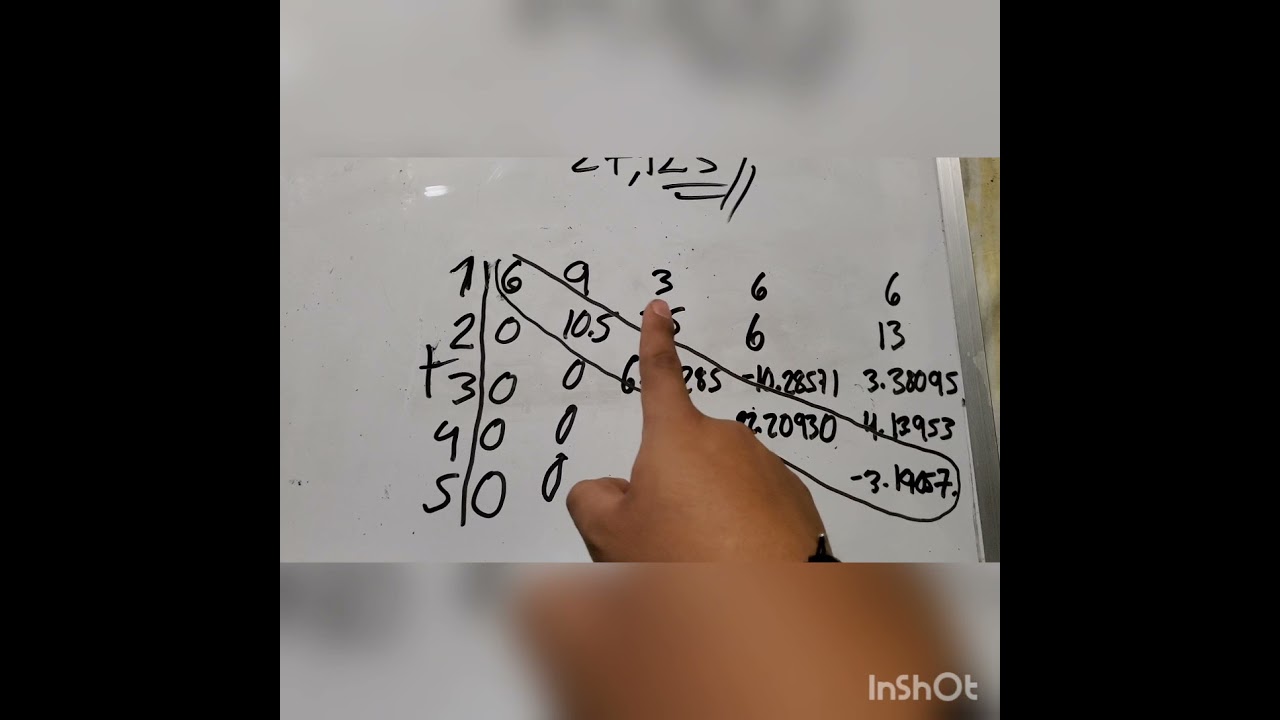 1 6 9 3 6 6
2 0 10.5 6 13
+
3 0 0 -10.28571 3.38095
4 0 0 4.13953
5 0 0 -3.19057.
InShOt